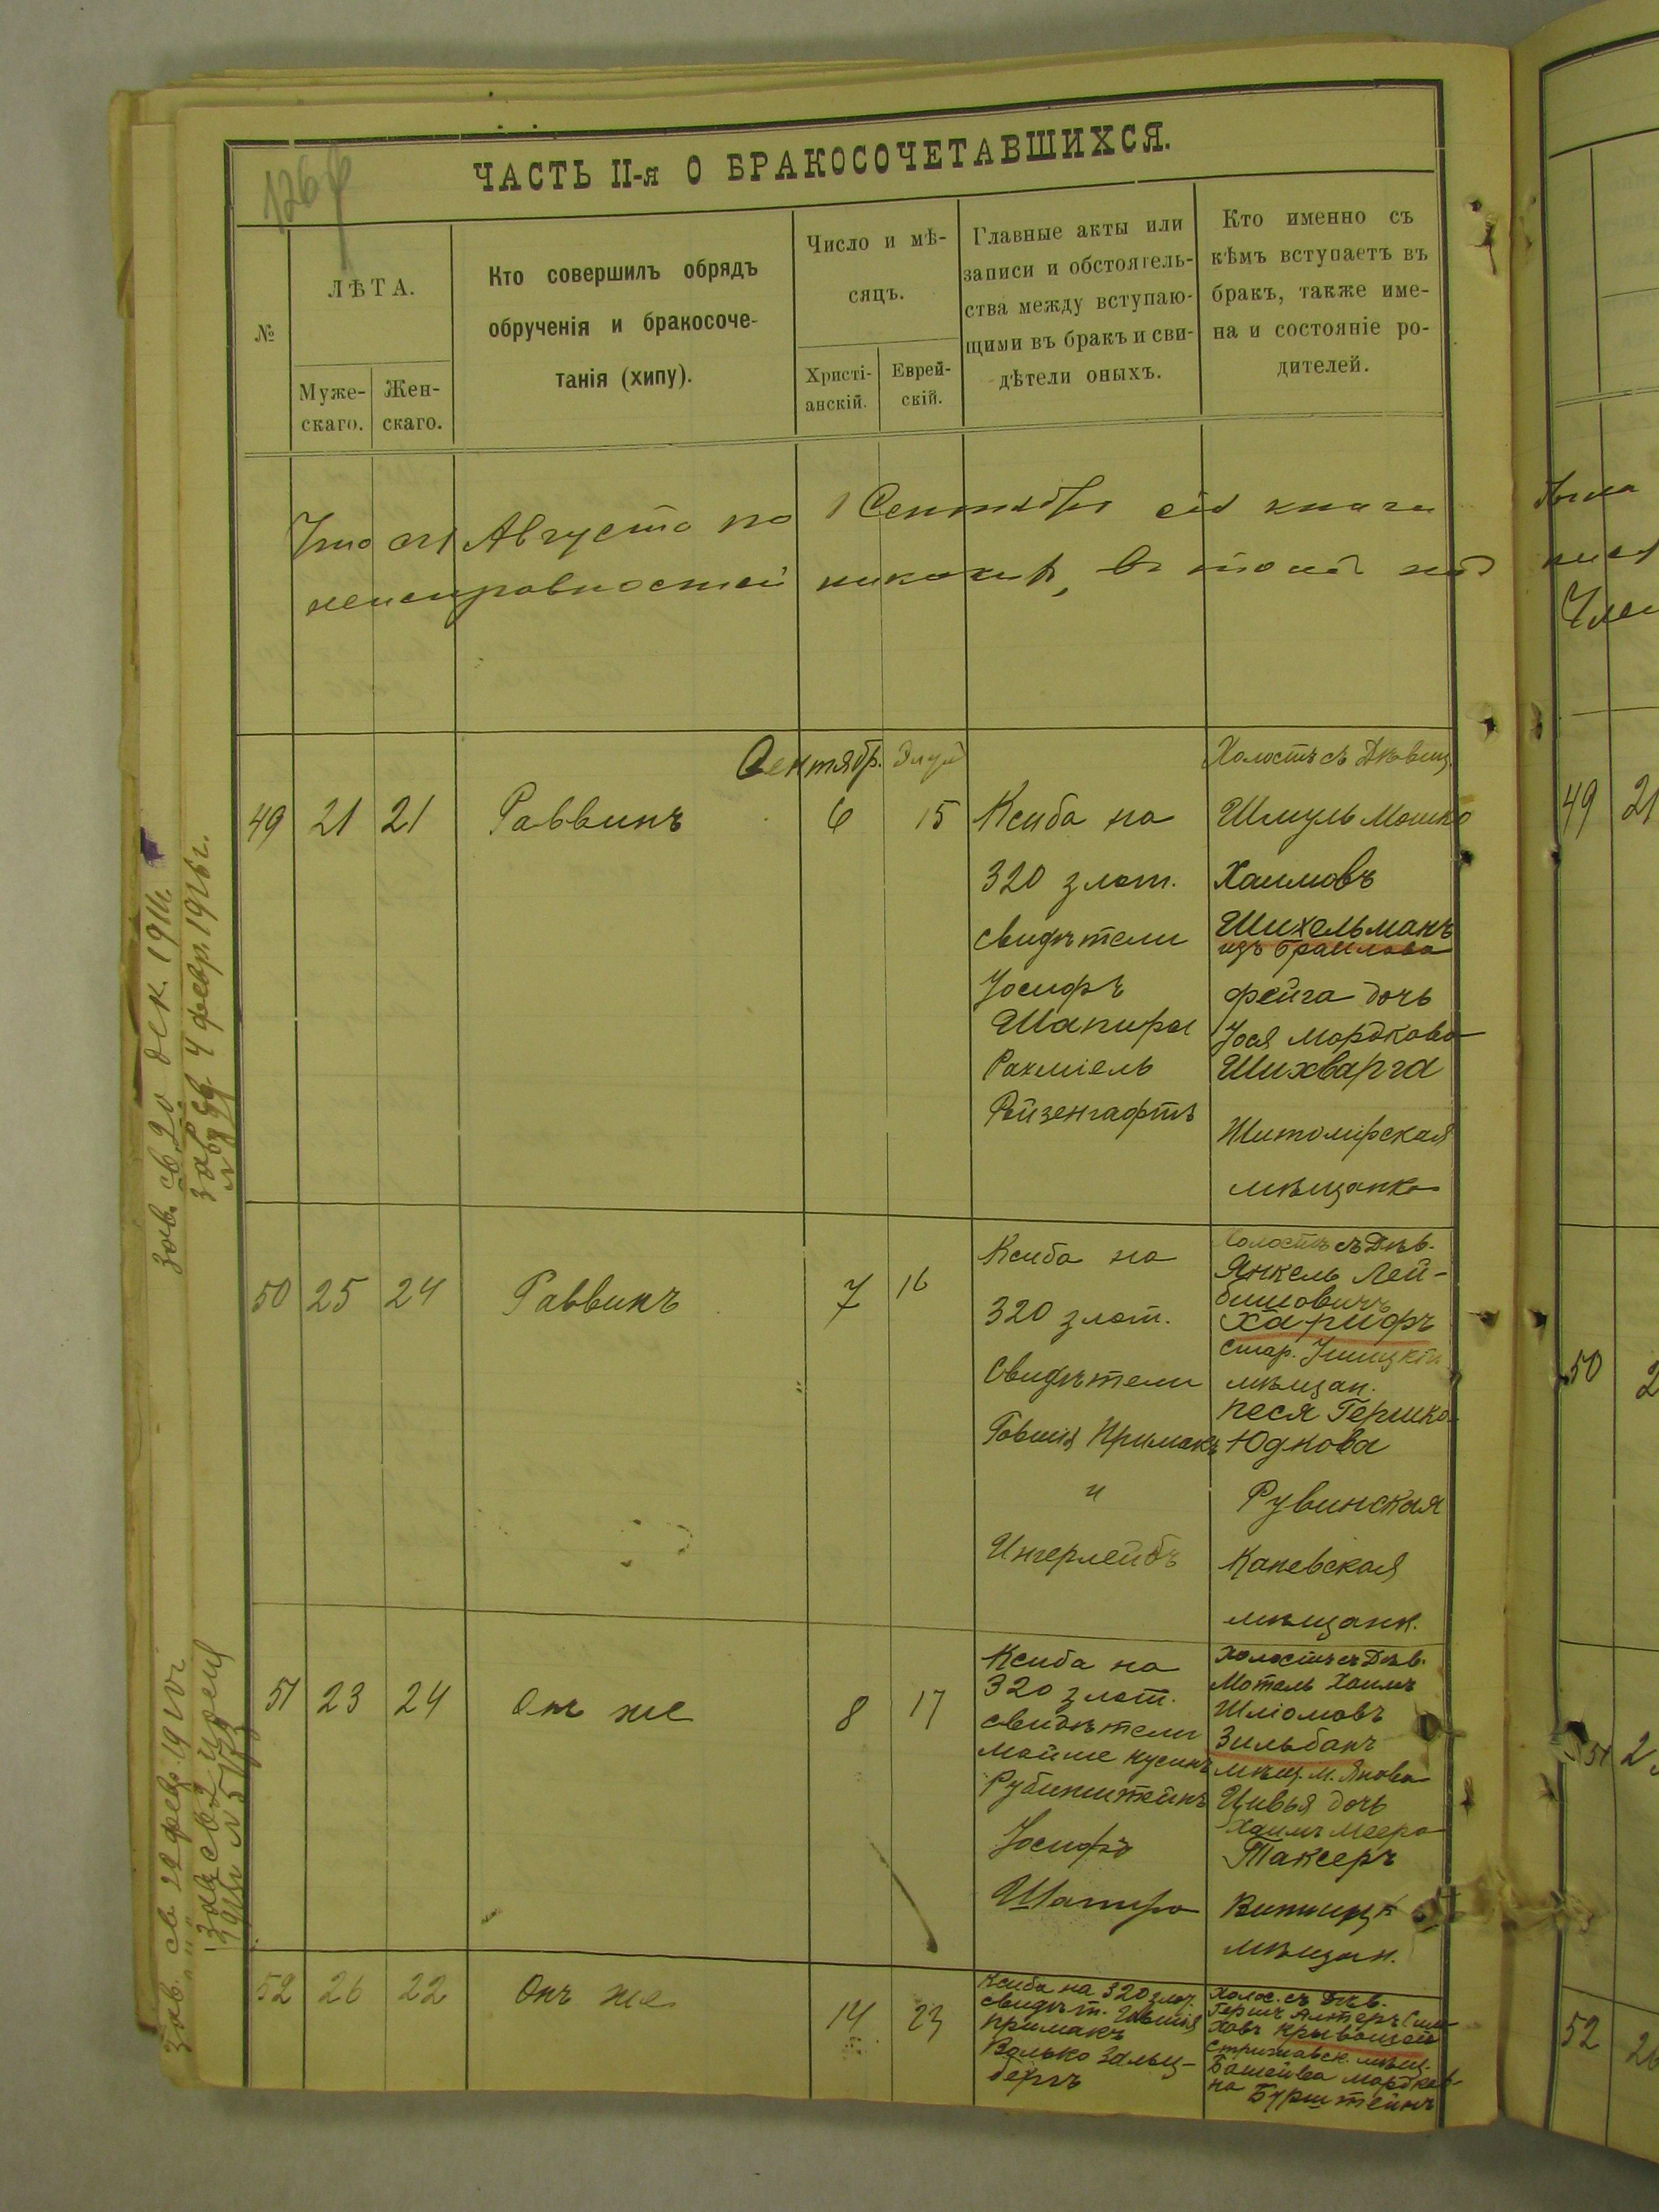 126
ЧАСТЬ II-я О БРАКОСОЧЕТАВШИХСЯ.
№
ЛѢТА.
Муже-
скаго.
Жен-
скаго.
Кто совершилъ обрядъ
обрученія и бракосоче-
танія (хипу).
Число и мѣ-
сяцъ.
Христі-
анскій.
Еврей-
скій.
Главные акты или
записи и обстоятель-
ства между вступаю-
щими въ бракъ и сви-
дѣтели оныхъ.
Кто именно съ
кѣмъ вступаетъ въ
бракъ, также име-
на и состояніе ро-
дителей.
Августа по 1 Сентября сія книга
неисправностей никакихъ, въ томъ
Сентябр. Элул
49 21 21 Раввинъ 6 15
Ксиба на
320 злот.
свидѣтели
Іосифъ
Шапиры
Рахміель
Рейзенгафтъ
Холостъ съ Дѣвиц.
Шмуль Мошко
Хаимовъ
Шихельманъ
изъ Браилова
фейга дочь
Іося Мордкова
Шихварга
Житомірская
мѣщанка
50 25 24 Раввинъ 7 16
Ксиба на
320 злот.
Свидѣтели
Говшія Примакъ
и
Ингерлейбъ
Холостъ съ Дѣв.
Янкель Лей-
бишовичъ
Харифъ
Стар. Ушицкій
мѣщан.
песя Гершко-
Юдкова
Рувинская
Каневская
мѣщанк.
51 23 24 Онъ же 8 17
Ксиба на
320 злот.
свидѣтели
Мойше Нусинъ
Рубинштейнъ
Іосифъ
Шапиро
Холостъ съ Дѣв.
Мотель Хаимъ
Шліомовъ
Зильбанъ
мѣщ. м. Янова
Цивья дочь
Хаимъ Меера
Таксеръ
Винницк
мѣщан.
52 26 22 Онъ же 14 23
Ксиба на 320 злот.
свидѣт. Говшія
примакъ
Волько Зальц-
бергъ
Холос. съ Дѣв.
Гершъ Алтеръ
ховъ Крывошей
Стрижавск. мѣщ.
Башейва Мордков-
на Бурштейнъ
Зав. св. 20 дек. 1911г.
4 февр. 1926г.
Зав. св. 22 февр.
49 21
50 2
51 2
52 26